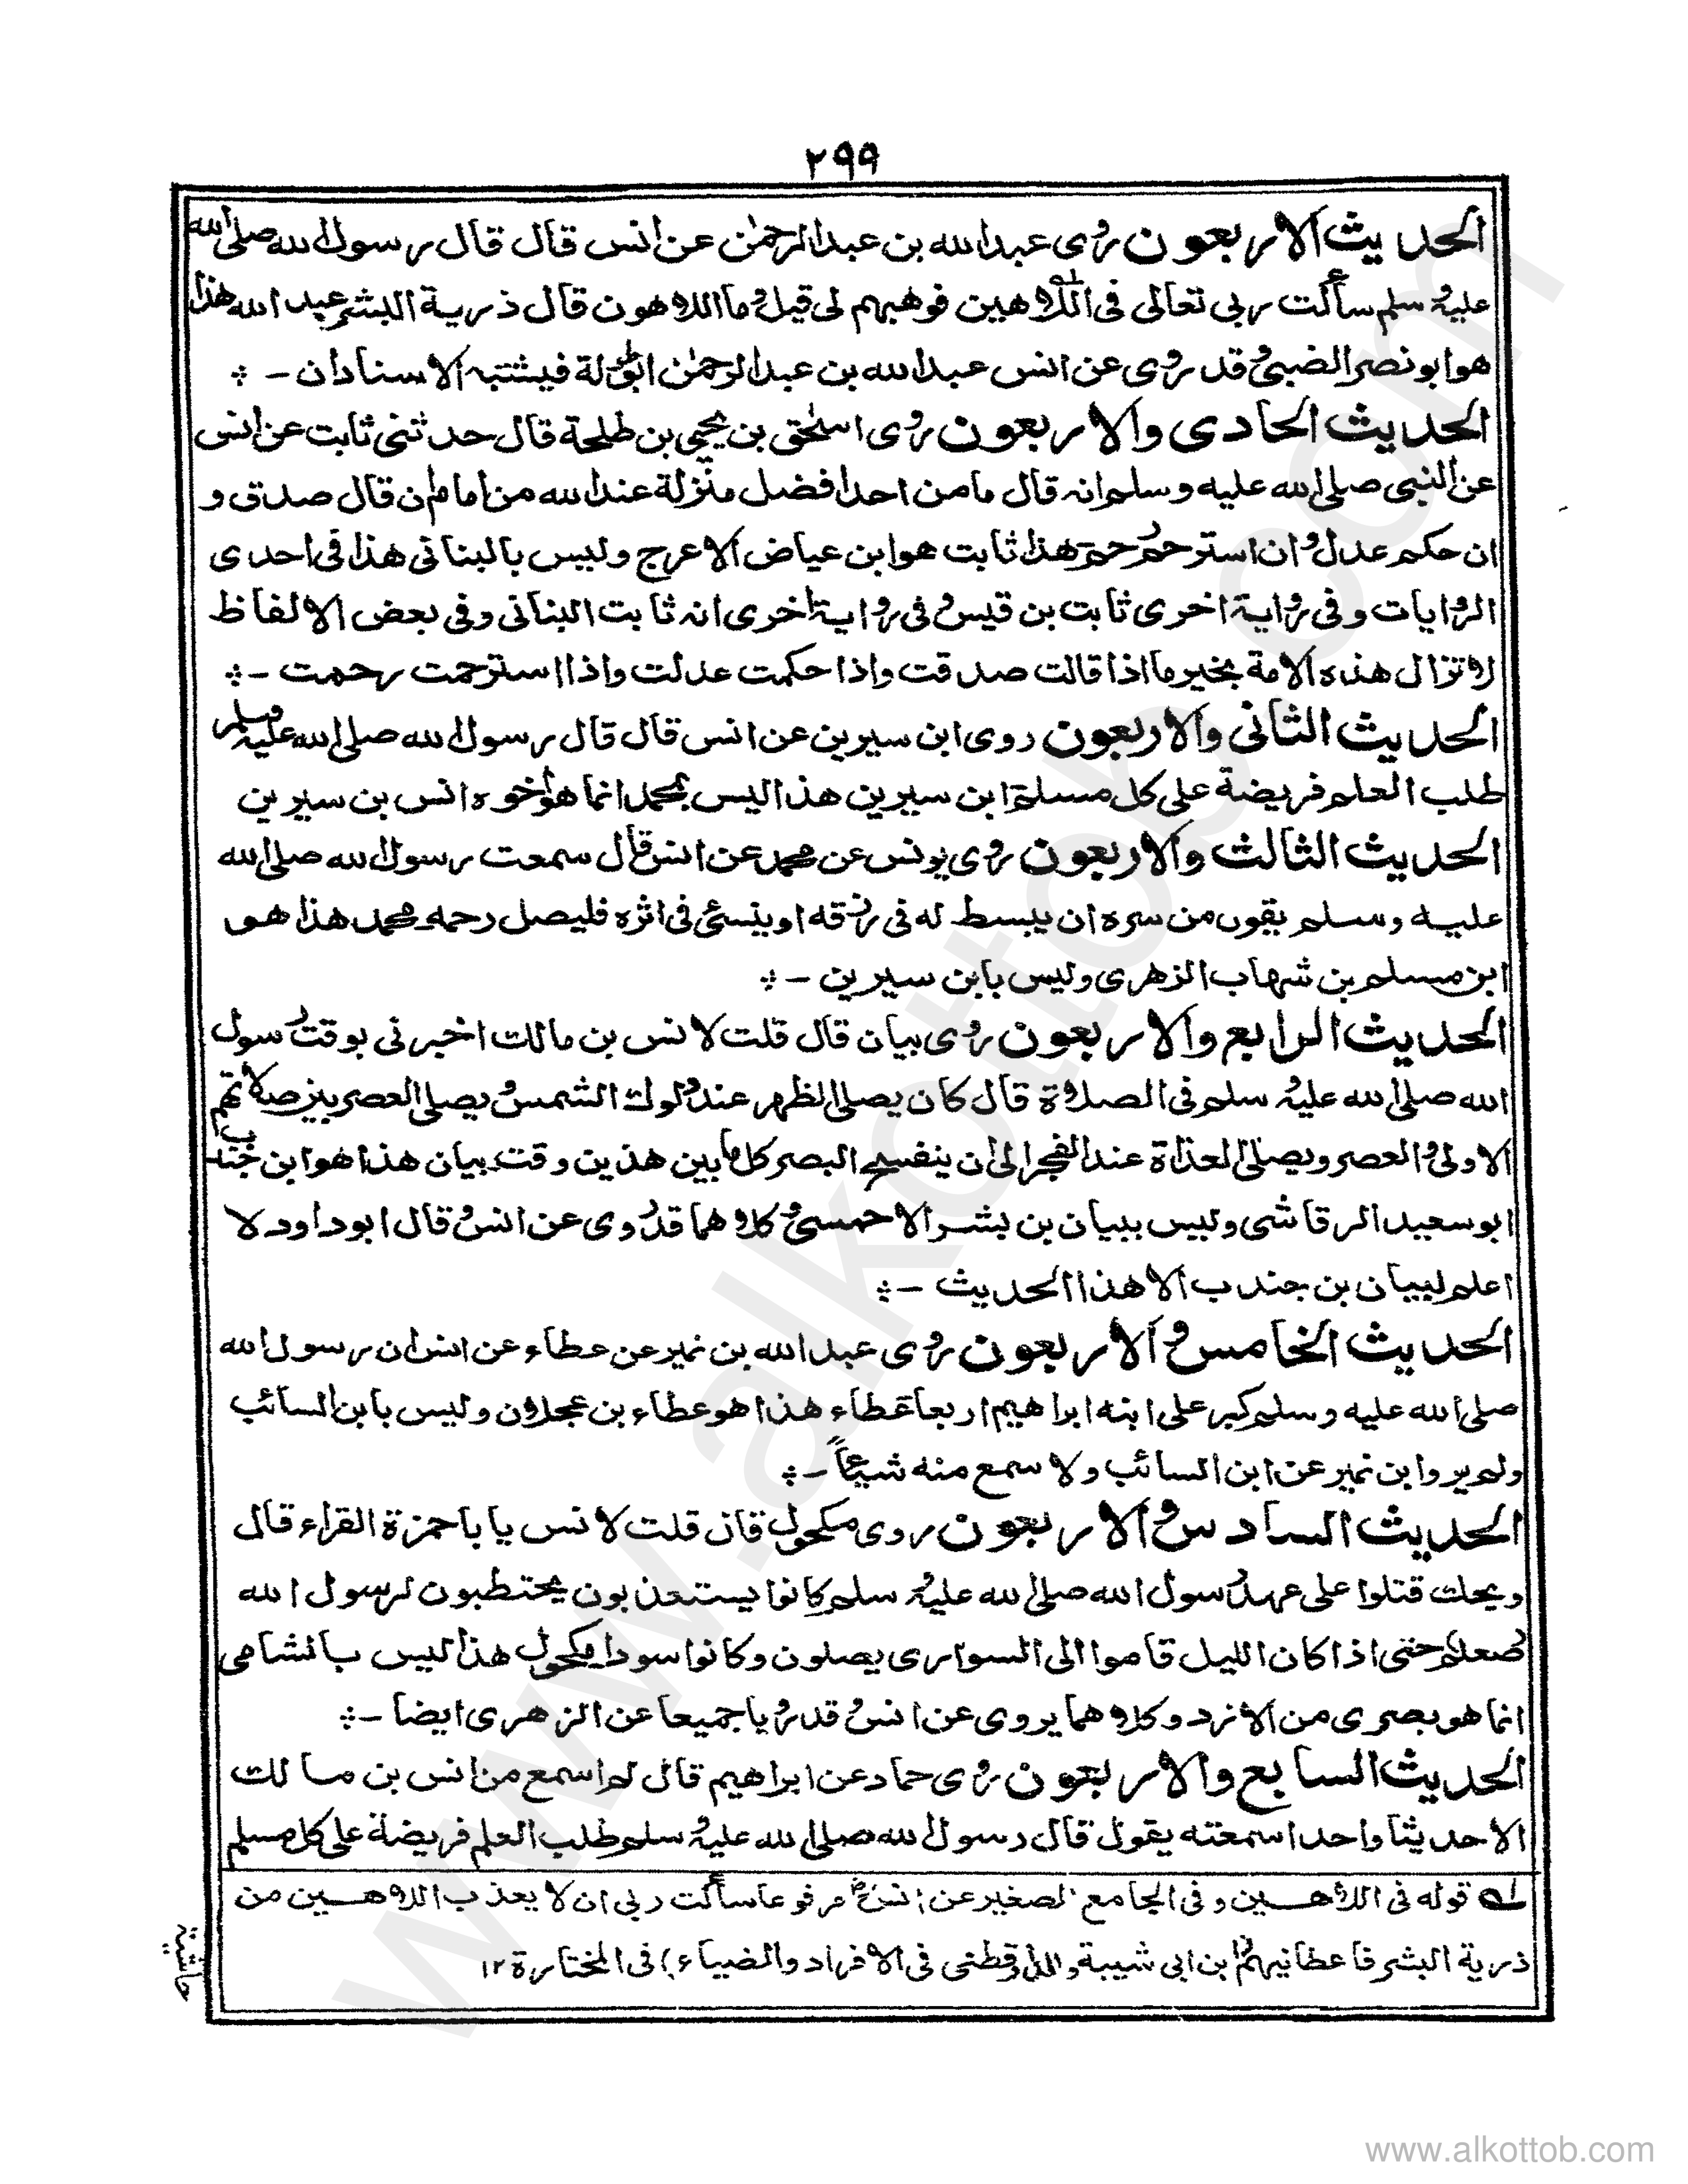 ٢٩٩
الحديث الاربعون روى عبدالله بن عبدالرحمٰن عن انس قال قال رسول الله صلى الله
عليه وسلم سألت ربى تعالى فى اللاهين فوهبهم لى قيل وما اللاهون قال ذرية البشر عبد الله هذا
هو ابو نصر الضبى وقد روى عن انس عبدالله بن عبدالرحمٰن ابوطوالة فيشتبه الاسنادان -
الحديث الحادى والاربعون روى اسحٰق بن يحيى بن طلحة قال حدثنى ثابت عن انس
عن النبى صلى الله عليه وسلم انه قال ما من احد افضل منزلة عند الله من امام ان قال صدق و
ان حكم عدل وان استرحم رحم هذا ثابت هو ابن عياض الاعرج وليس بالبنانى هذا فى احدى
الروايات وفى رواية اخرى ثابت بن قيس وفى رواية اخرى انه ثابت البنانى وفى بعض الالفاظ
لا تزال هذه الامة بخير ما اذا قالت صدقت واذا حكمت عدلت واذا استرحمت رحمت -
الحديث الثانى والاربعون روى ابن سيرين عن انس قال قال رسول الله صلى الله عليه وسلم
طلب العلم فريضة على كل مسلم ابن سيرين هذا ليس بمحمد انما هو اخوه انس بن سيرين
الحديث الثالث والاربعون روى يونس عن محمد عن انس قال سمعت رسول الله صلى الله
عليه وسلم يقول من سره ان يبسط له فى رزقه او ينسئ فى اثره فليصل رحمه محمد هذا هو
ابن مسلم بن شهاب الزهرى وليس بابن سيرين -
الحديث الرابع والاربعون روى بيان قال قلت لانس بن مالك اخبرنى بوقت رسول
الله صلى الله عليه وسلم فى الصلاة قال كان يصلى الظهر عند دلوك الشمس ويصلى العصر بين صلاتهم
الاولى والعصر ويصلى الغداة عند الفجر الى ان ينفسح البصر كل ما بين هذين وقت بيان هذا هو ابن جندب
ابو سعيد الرقاشى وليس ببيان بن بشر الاحمسى وكلاهما قد روى عن انس وقال ابوداود لا
اعلم لبيان بن جندب الا هذا الحديث -
الحديث الخامس والاربعون روى عبدالله بن نمير عن عطاء عن انس ان رسول الله
صلى الله عليه وسلم كبر على ابنه ابراهيم اربعا عطاء هذا هو عطاء بن عجلان وليس بابن السائب
ولم يرو ابن نمير عن ابن السائب ولا سمع منه شيئاً -
الحديث السادس والاربعون روى مكحول قال قلت لانس يا باحمزة القراء قال
ويحك قتلوا على عهد رسول الله صلى الله عليه وسلم كانوا يستعذبون يحتطبون لرسول الله
صلعم حتى اذا كان الليل قاموا الى السوارى يصلون وكانوا سودا مكحول هذا ليس بالشامى
انما هو بصرى من الازد وكلاهما يروى عن انس وقد رويا جميعا عن الزهرى ايضا -
الحديث السابع والاربعون روى حماد عن ابراهيم قال لم اسمع من انس بن مالك
الا حديثا واحدا سمعته يقول قال رسول الله صلى الله عليه وسلم طلب العلم فريضة على كل مسلم
له قوله فى اللاهين وفى الجامع الصغير عن انس مرفوعا سألت ربى ان لا يعذب اللاهين من
ذرية البشر فاعطانيهم رواه ابن ابى شيبة والدارقطنى فى الافراد والضياء فى المختارة ١٢
حاشية
www.alkottob.com
www.alkottob.com